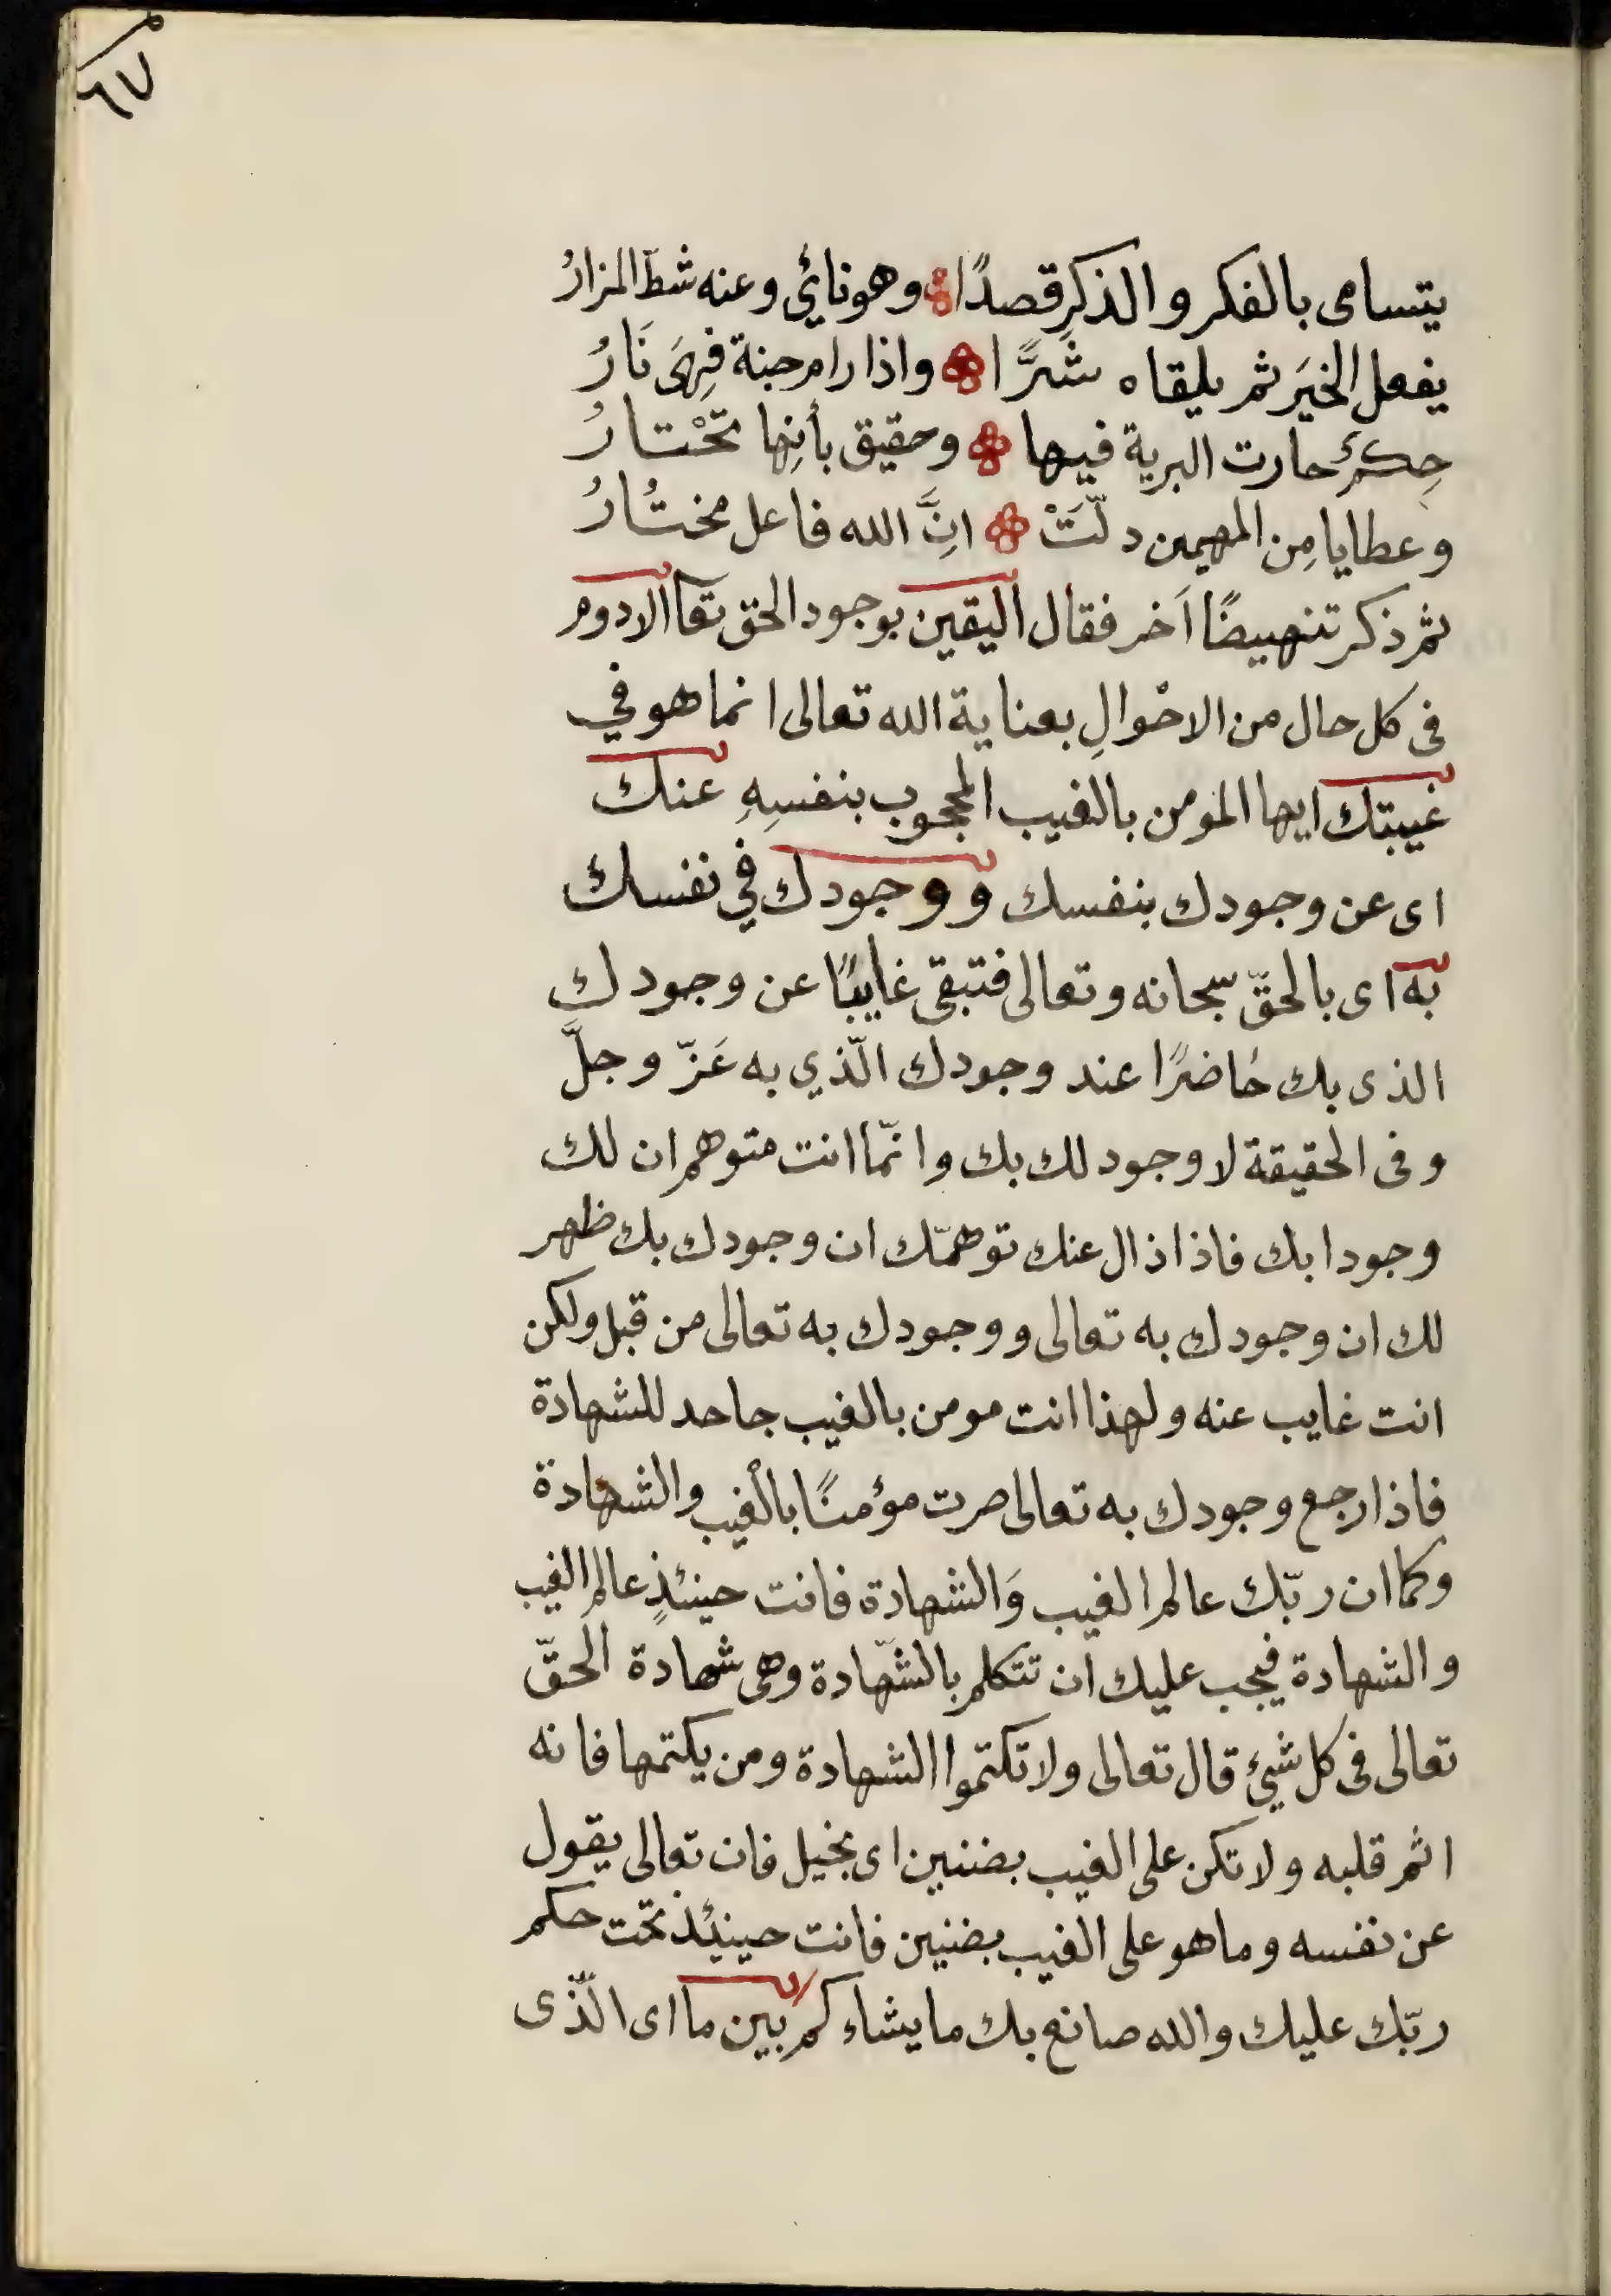 ٦٧
يتسامى بالفكر والذكرِ قصدًا وهو نائي وعنه شطّ المزارُ
يفعل الخيَر ثم يلقاه شَرًّا واذا رام جنة فِهىَ نَارُ
حِكمٌ حارت البرية فيها وحقيق بأنِها تحْتارُ
وعطايا مِن المهيمن دلّتْ انَِّ الله فاعل مختُارُ
ثم ذكر تنهيضًا آخر فقال اليقين بوجود الحق تعا الادوم
فى كل حال من الاحْوالِ بعناية الله تعالى انما هو في
غيبتك ايها المومن بالغيب المحجوب بنفسِهِ عنك
اى عن وجودك بنفسك و وجودك في نفسك
به اى بالحقّ سبحانه وتعالى فتبقى غايبًا عن وجودك
الذى بك حُاضرًا عند وجودك الّذي به عَزّ وجلَّ
وفى الحقيقة لا وجود لك بك وانّما انت متوهم ان لك
وجودا بك فاذا ذال عنك توهمّك ان وجودك بك ظهر
لك ان وجودك به تعالى ووجودك به تعالى من قبل ولكن
انت غايب عنه ولهذا انت مومن بالغيب جاحد للشهادة
فاذا رجع وجودك به تعالى صرت مؤمنًا بالْغيب والشهادة
وكما ان ربّك عالم الغيب وَالشهادة فانت حينئذٍ عالم الغيب
والشهادة فيجب عليك ان تتكلم بالشّهادة وهى شهادة الحقّ
تعالى فى كل شيئ قال تعالى ولا تكتموا الشهادة ومن يكتمها فانه
اثم قلبه ولا تكن على الغيب بضنين اى بخيل فان تعالى يقول
عن نفسه وما هو على الغيب بضنين فانت حينئذ تحت حكم
ربّك عليك والله صانع بك ما يشاء كم بين ما اى الّذى